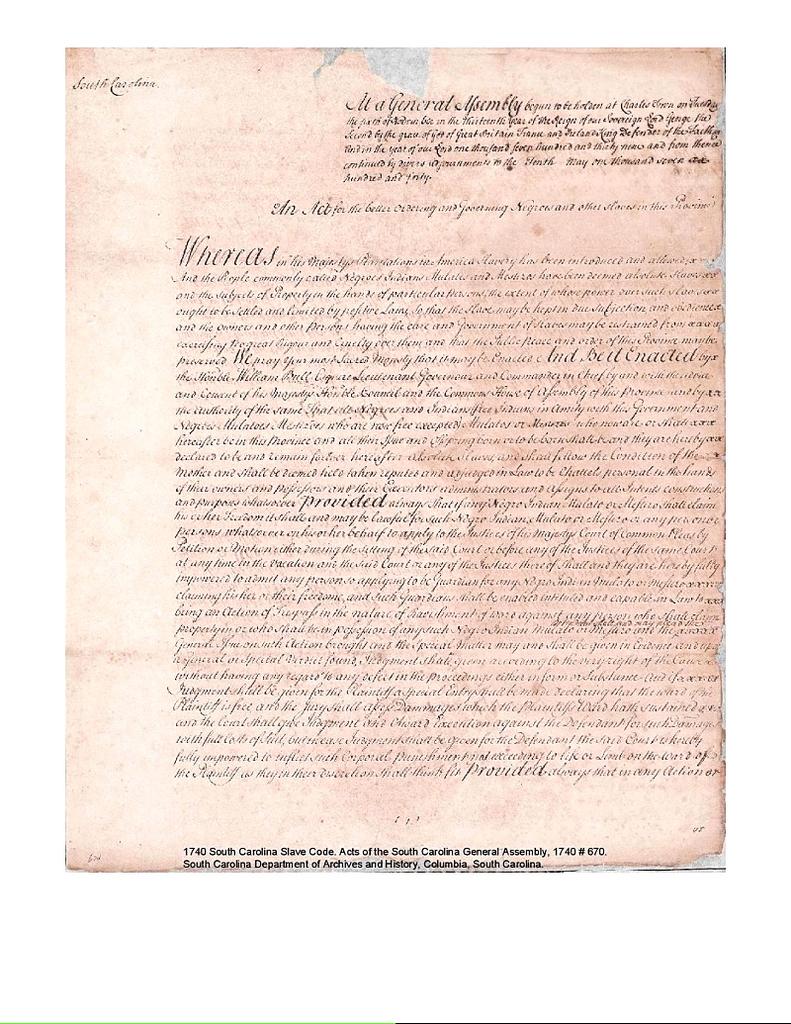 South Carolina.
At a General Assembly begun to be holden at Charles Town on Tuesday
the in the thirteenth Year of the Reign of our Sovereign Lord George the
Second by the grace of God of Great Britain France and Ireland King Defender of the Faith
And in the year of our Lord one thousand seven hundred and thirty nine and from thence
continued by divers adjournments to the tenth May one thousand seven
hundred and forty.
An Act for the better Ordering and Governing Negroes and other slaves in this Province
Whereas in his Majestys Plantations in America Slavery has been introduced and allowed
And the People commonly called Negroes Indians Mulatos and Mestizos have been deemed absolute Slaves
and the Subjects of Property in the hands of particular Persons the extent of whose power over such Slaves
ought to be settled and limited by positive Laws So that the Slave may be kept in due Subjection and obedience
and the owners and other Persons having the care and Government of Slaves may be restrained from
exercising too great Rigour and Cruelty over them and that the Public Peace and order of this Province may be
preserved We pray Your most Sacred Majesty that it may be Enacted And Be it Enacted by
the Honble William Bull Esquire Lieutenant Governour and Commander in Chief by and with the advice
and Consent of his Majestys Honble Council and the Commons House of Assembly of this Province and by
the Authority of the same That all Negroes and Indians (free Indians in Amity with this Government and
Negroes Mulatoes Mestizoes who are now free excepted) Mulatos or Mestizos who now are or shall
hereafter be in this Province and all their Issue and Offspring born or to be born shall be and they are hereby
declared to be and remain forever hereafter absolute Slaves, and shall follow the Condition of the
Mother and shall be deemed held taken reputed and adjudged in Law to be Chattels personal in the hands
of their owners and possessors and their Executors administrators and assigns to all Intents constructions
and purposes whatsoever Provided always that if any Negro Indian Mulato or Mestizo shall claim
his or her Freedom it shall and may be lawful for such Negro Indian, Mulato or Mestizo or any person or
persons whatsoever on his or her behalf to apply to the Justices of his Majestys Court of Common Pleas by
Petition or Motion either during the sitting of the said Court or before any of the Justices of the same Court
at any time in the vacation and the said Court or any of the Justices thereof shall and they are hereby fully
impowered to admit any person so applying to be Guardian for any Negro Indian Mulato or Mestizo
claiming his her or their freedome, and such Guardians shall be enabled intituled and capable in Law to
bring an Action of Trespass in the nature of Ravishment of ward against any person who shall claim
property in or who shall be in possession of any such Negro Indian Mulato or Mestizo and the
General Issue on such Action brought and the Special Matter may and shall be given in Evidence and upon
a General or Special Verdict found, Judgment shall be given according to the very right of the Cause
without having any regard to any defect in the Proceedings either in form or Substance And if
Judgment shall be given for the Plaintiff a Special Entry shall be made declaring that the ward of the
Plaintiff is free and the Jury shall assess Dammages which the Plaintiffs Ward hath sustained
and the Court shall give Judgment and Award Execution against the Defendant for such Damage
with full Costs of Suit, but in case Judgment shall be given for the Defendant the said Court is hereby
fully empowered to inflict such Corporal punishment not extending to life or Limb on the ward of
the Plaintiff as they in their discretion shall think fit Provided always that in any Action or
1740 South Carolina Slave Code. Acts of the South Carolina General Assembly, 1740 # 670.
South Carolina Department of Archives and History, Columbia, South Carolina.